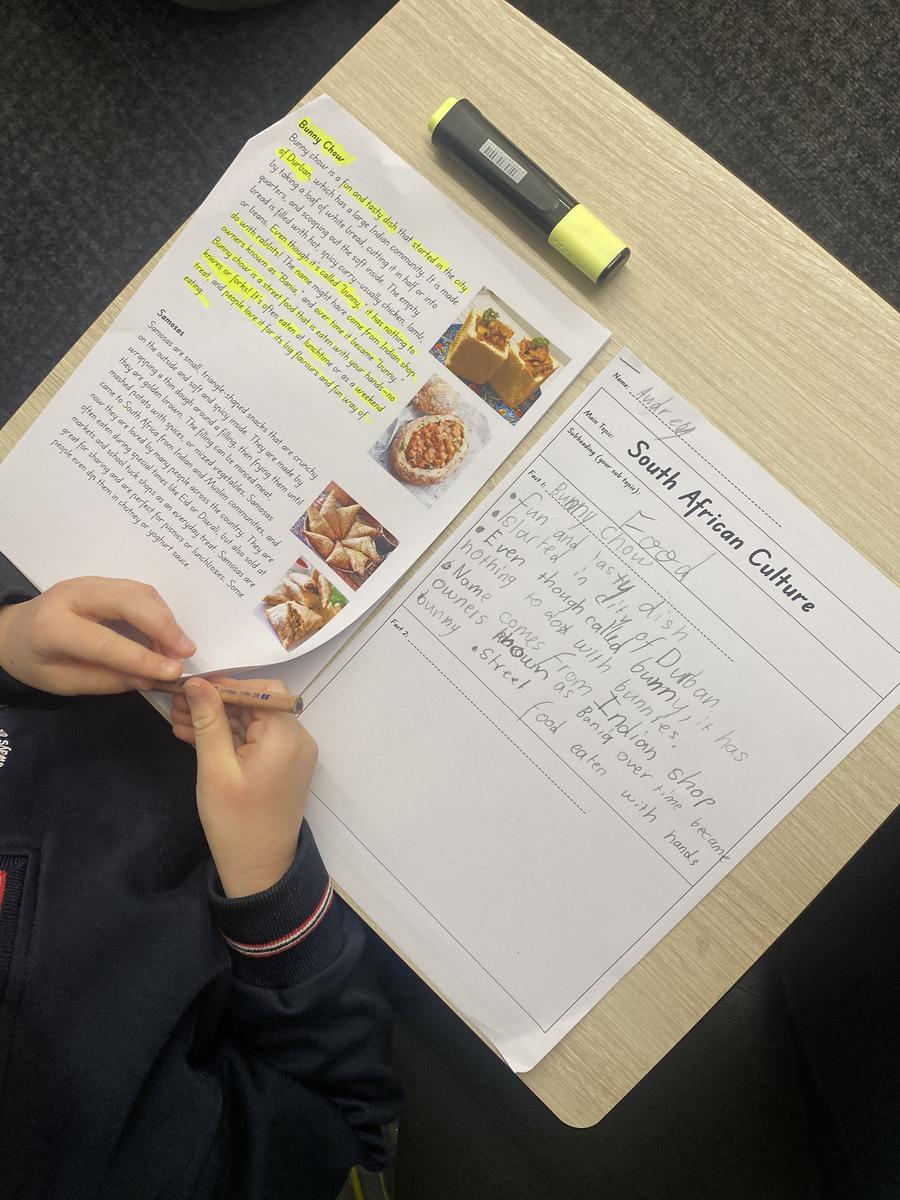 Bunny Chow
Bunny chow is a fun and tasty dish that started in the city
of Durban, which has a large Indian community. It is made
by taking a loaf of white bread, cutting it in half or into
quarters, and scooping out the soft inside. The empty
bread is filled with hot, spicy curry—usually chicken, lamb,
or beans. Even though it's called "bunny," it has nothing to
do with rabbits! The name might have come from Indian shop
owners known as "Bania," and over time it became "bunny."
Bunny chow is a street food that is eaten with your hands—no
knives or forks! It's often eaten at lunchtime or as a weekend
treat, and people love it for its big flavours and fun way of
eating.
Samosas
Samosas are small, triangle-shaped snacks that are crunchy
on the outside and soft and spicy inside. They are made by
wrapping a thin dough around a filling, then frying them until
they are golden brown. The filling can be minced meat,
mashed potato with spices, or mixed vegetables. Samosas
came to South Africa from Indian and Muslim communities and
now they are loved by many people across the country. They are
often eaten during special times like Eid or Diwali, but also sold at
markets and school tuck shops as an everyday treat. Samosas are
great for sharing and are perfect for picnics or lunchboxes. Some
people even dip them in chutney or yoghurt sauce.
Name: Audrey
Main Topic: South African Culture
Subheading (your sub topic): Food
Fact 1: Bunny Chow
• fun and tasty dish
• started in city of Durban
• Even though called bunny, it has
nothing to do with bunnies.
• Name comes from Indian shop
owners known as Bania over time became
bunny
• street food eaten with hands
Fact 2: